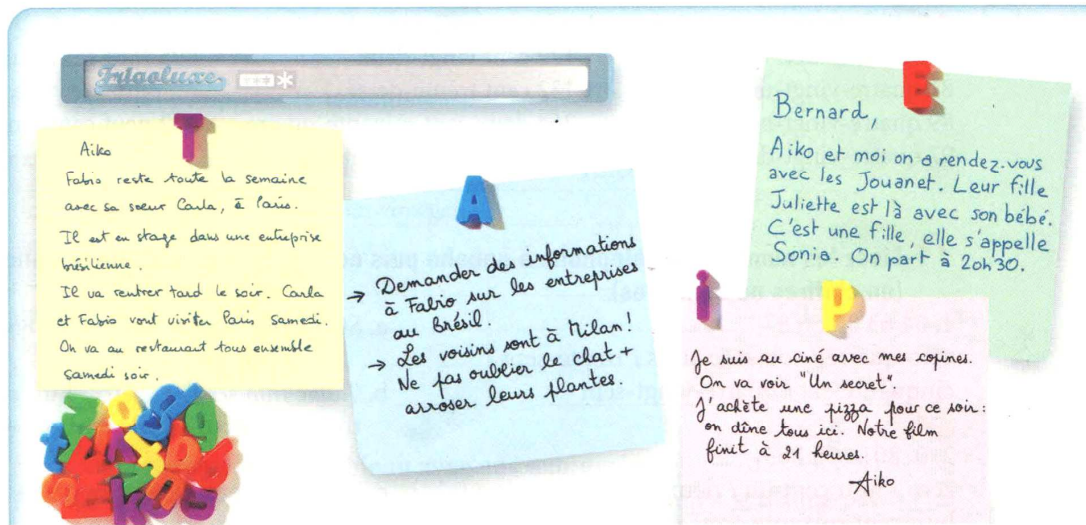 Frigoluxe
Aiko
Fabio reste toute la semaine
avec sa soeur Carla, à Paris.
Il est en stage dans une entreprise
brésilienne.
Il va rentrer tard le soir. Carla
et Fabio vont visiter Paris samedi.
On va au restaurant tous ensemble
samedi soir.
→ Demander des informations
à Fabio sur les entreprises
au Brésil.
→ Les voisins sont à Milan !
Ne pas oublier le chat +
arroser leurs plantes.
Bernard,
Aiko et moi on a rendez-vous
avec les Jouanet. Leur fille
Juliette est là avec son bébé.
C'est une fille, elle s'appelle
Sonia. On part à 20h30.
Je suis au ciné avec mes copines.
On va voir "Un secret".
J'achète une pizza pour ce soir :
on dîne tous ici. Notre film
finit à 21 heures.
Aiko